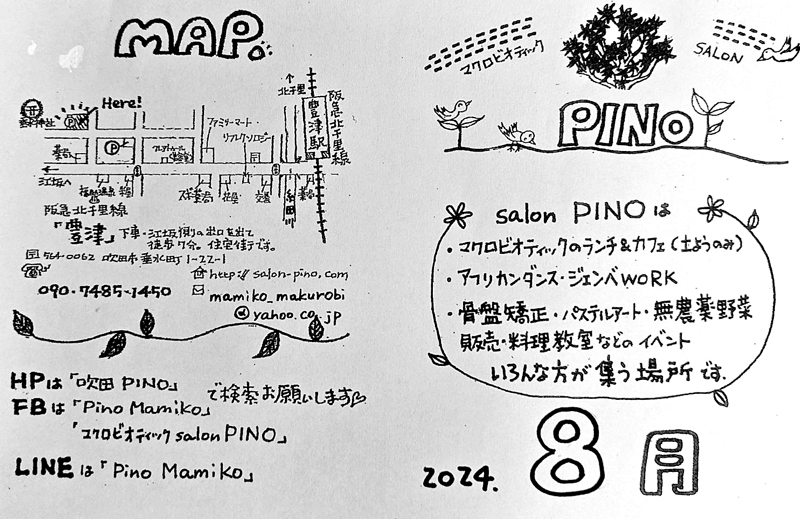 MAP.
Here!
垂水神社
P
P
薬局
江坂へ
ファミリーマート
リフレクソロジー
スギ薬局
花屋
交番
糸田川
薬局
北千里
豊津駅
阪急北千里線
阪急北千里線
「豊津」下車・江坂側の出口を出て
徒歩7分。住宅街です。
564-0062 吹田市垂水町1-22-1
http://salon-pino.com
090-7485-1450
mamiko_makurobi
@yahoo.co.jp
HPは「吹田 PINO」
で検索お願いします
FBは「Pino Mamiko」
「マクロビオティック salon PINO」
LINEは「Pino Mamiko」
マクロビオティック
SALON
PINO
salon PINOは
・マクロビオティックのランチ&カフェ(土ようのみ)
・アフリカンダンス・ジェンベWORK
・骨盤矯正・パステルアート・無農薬野菜
販売・料理教室などのイベント
いろんな方が集う場所です.
2024. 8月